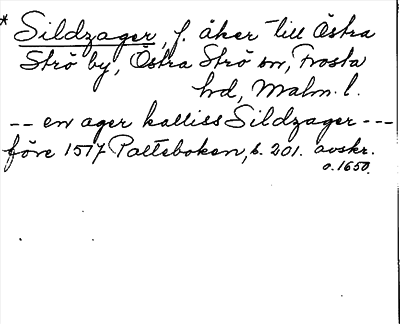 * Sildzager, f. åker till Östra
Strö by, Östra Strö sn, Frosta
hd, Malm. l.
-- en ager kalliss Sildzager ---
före 1517 Palteboken, s. 201. avskr.
o. 1650.